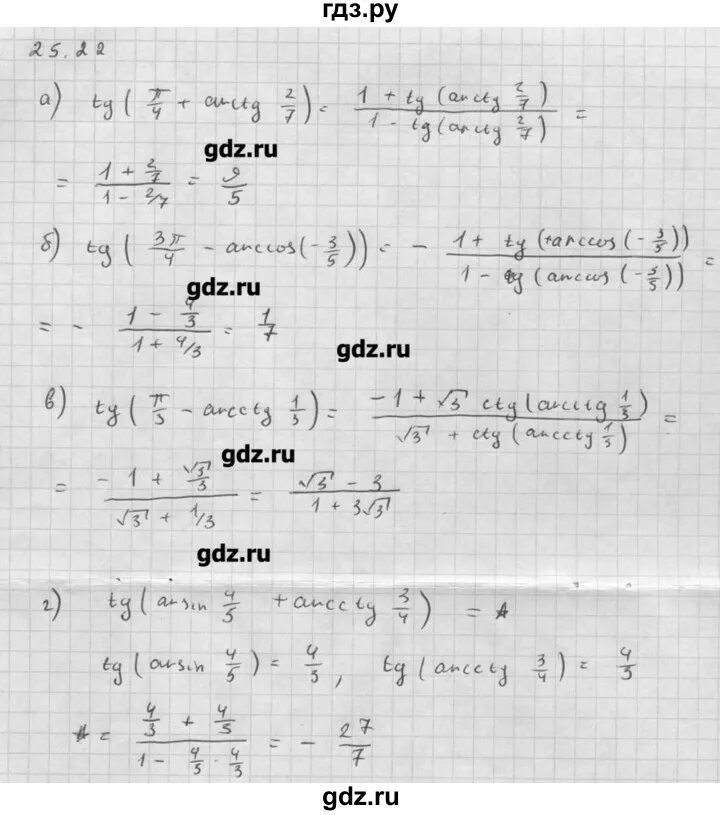 гдз.ру
25.22
а) tg(π/4 + arctg 2/7) = (1 + tg(arctg 2/7))/(1 - tg(arctg 2/7)) =
gdz.ru
= (1 + 2/7)/(1 - 2/7) = 9/5
б) tg(3π/4 - arccos(-3/5)) = - (1 + tg(+arccos(-3/5)))/(1 - tg(arccos(-3/5))) =
gdz.ru
= - (1 - 4/3)/(1 + 4/3) = 1/7
gdz.ru
в) tg(π/3 - arcctg 1/3) = (-1 + √3 ctg(arcctg 1/3))/(√3 + ctg(arcctg 1/3)) =
gdz.ru
= (-1 + √3/3)/(√3 + 1/3) = (√3 - 3)/(1 + 3√3)
gdz.ru
г) tg(arsin 4/5 + arcctg 3/4) = *
tg(arsin 4/5) = 4/3, tg(arcctg 3/4) = 4/3
* = (4/3 + 4/3)/(1 - 4/3 · 4/3) = - 27/7
gdz.ru